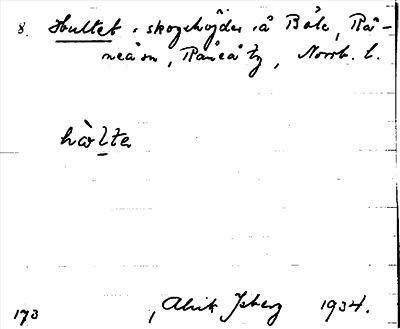 8. Hultet, skogshöjder å Böle, Rå-
neåsn, Råneå tg, Norrb. l.
hòlte
173 Alrik Isberg 1934.